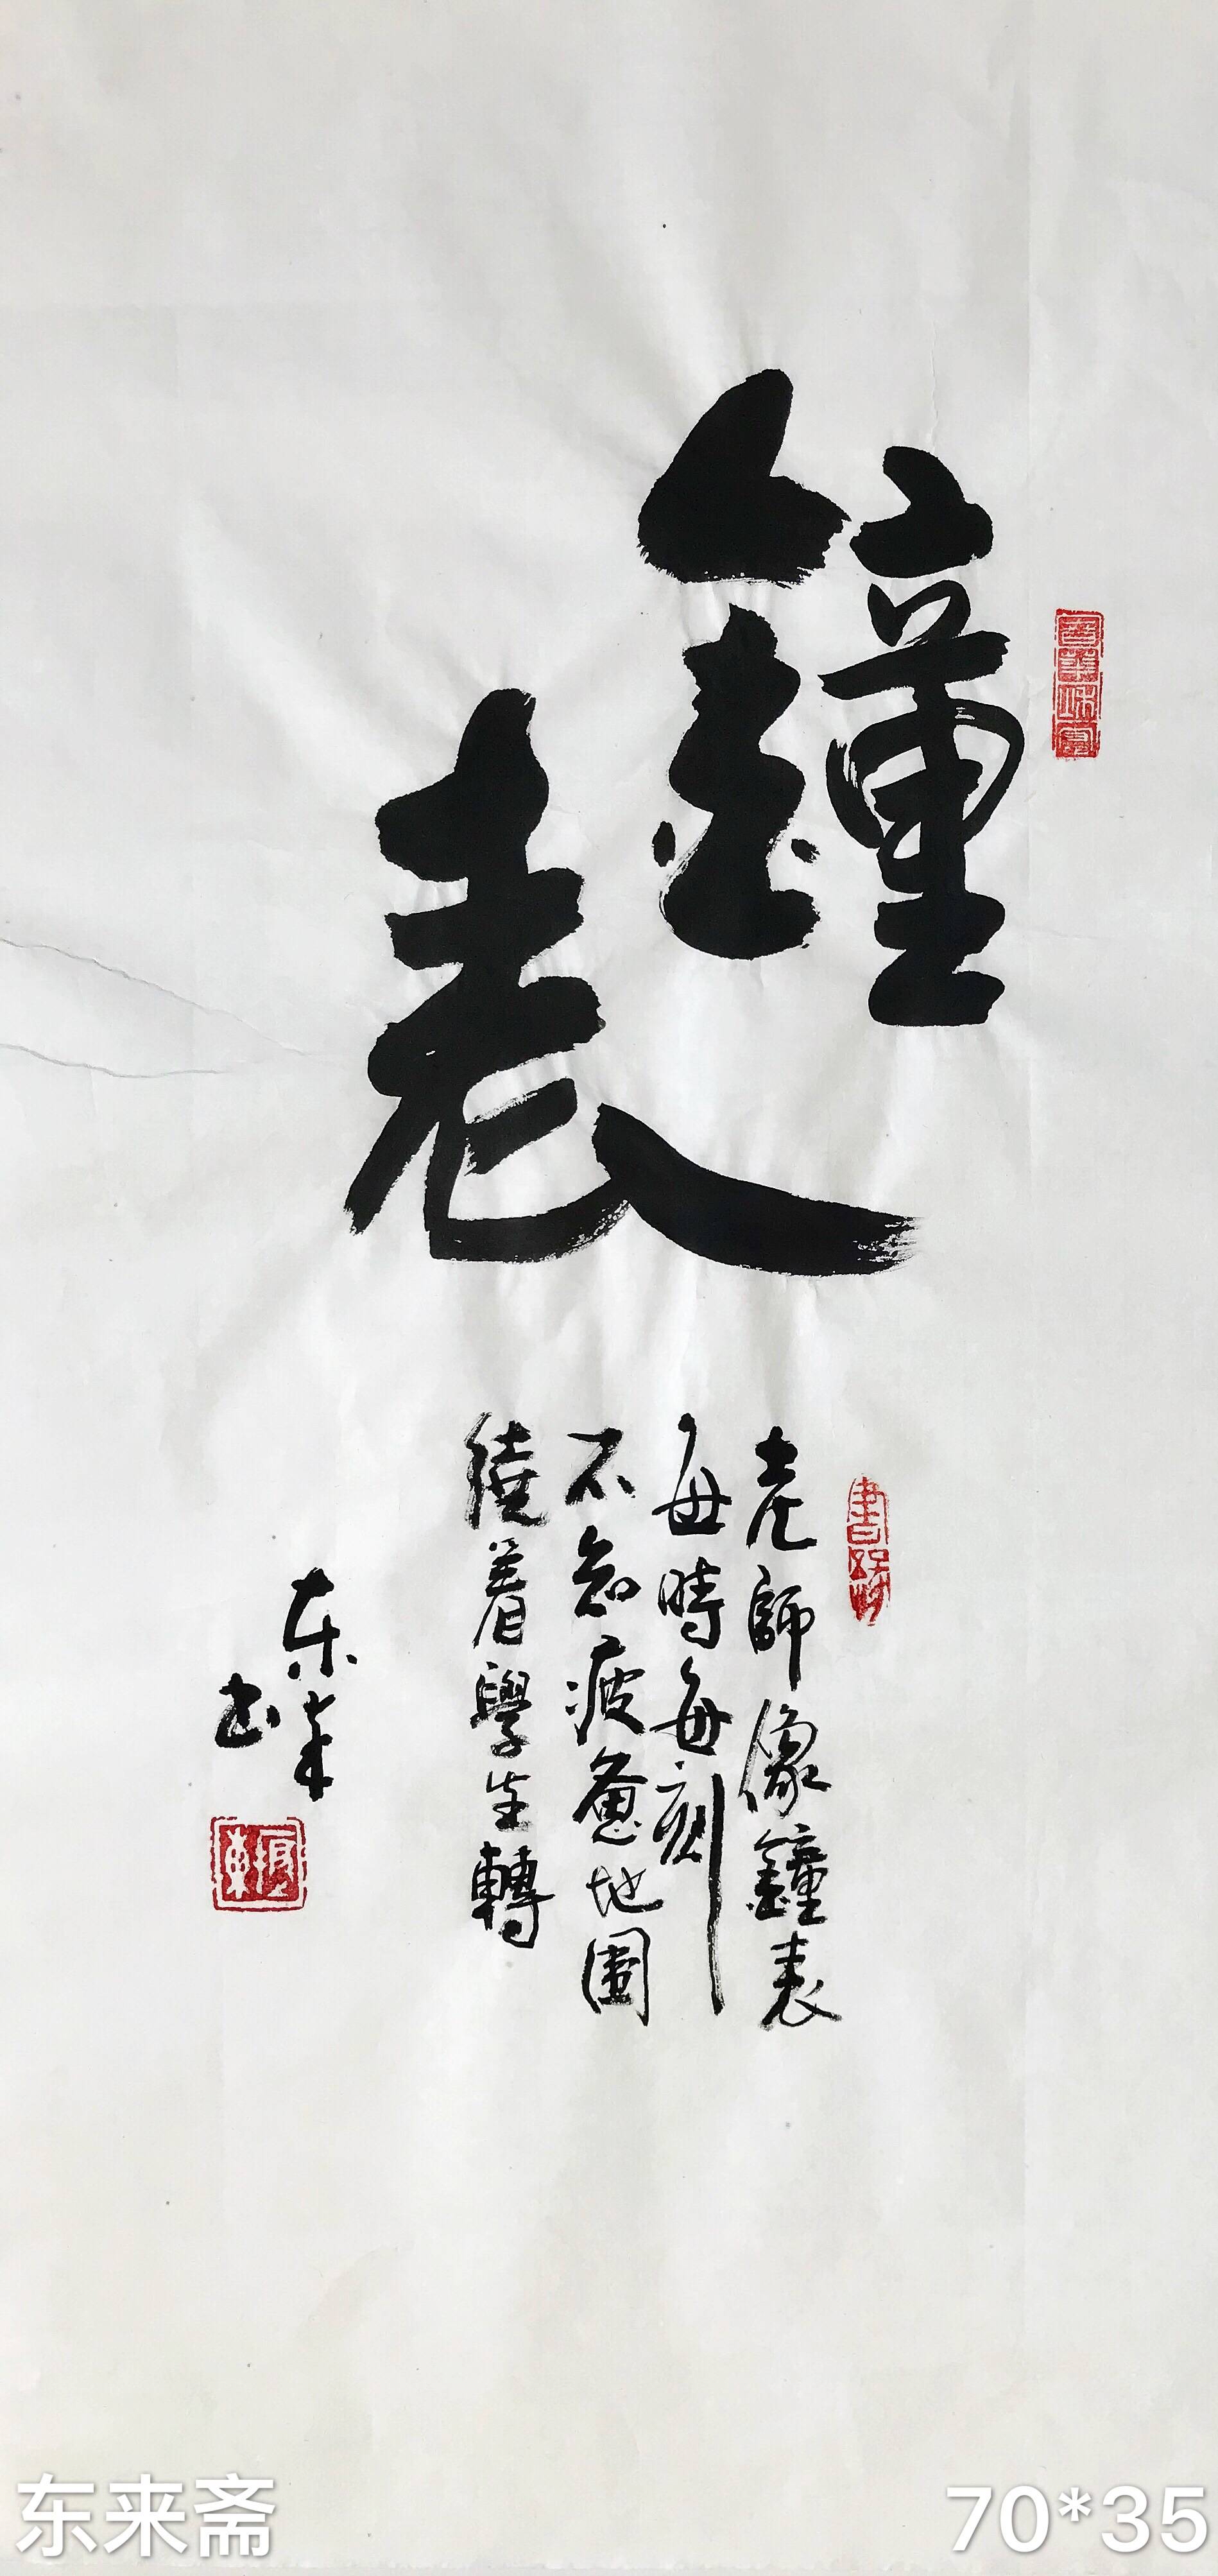 鐘
表
老師像鐘表
每時每刻
不知疲惫地圍
繞着學生轉
东来
书
东来斋
70*35